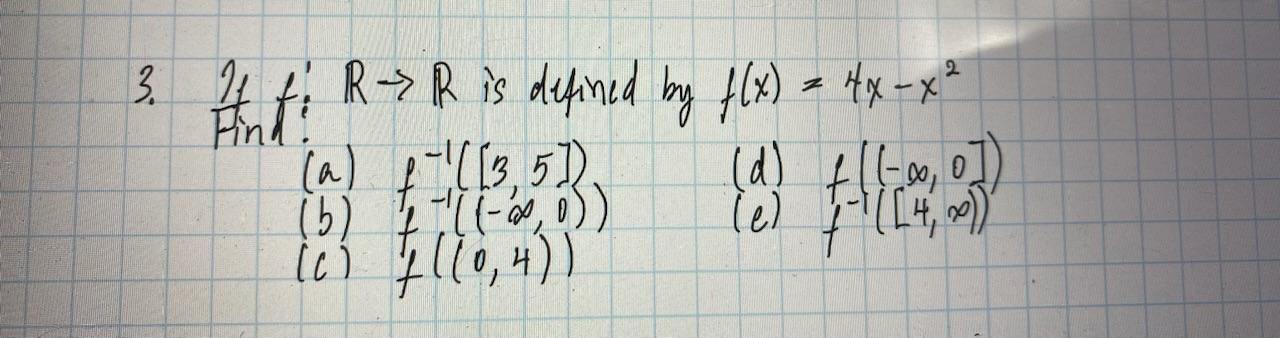 3. If f: R → R is defined by f(x) = 4x - x²
Find:
(a) f⁻¹([3, 5])
(b) f⁻¹((-∞, 0))
(c) f((0, 4))
(d) f((-∞, 0])
(e) f⁻¹([4, ∞))